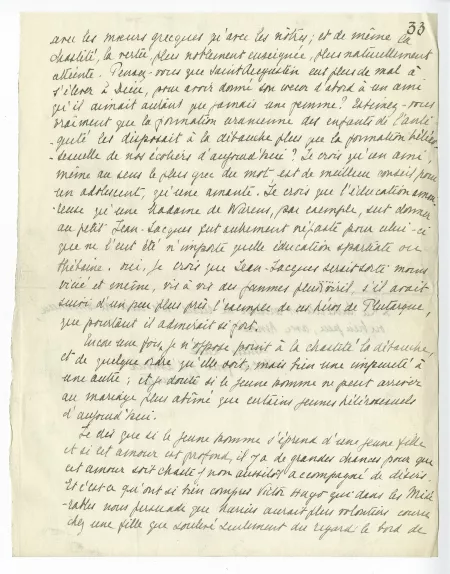 33
avec les mœurs grecques qu'avec les nôtres; et de même la
chasteté, la vertu, plus noblement enseignée, plus naturellement
atteinte. Pensez-vous que Saint Augustin eut plus de mal à
s'élever à Dieu, pour avoir donné son cœur d'abord à un ami
qu'il aimait autant que jamais une femme? Estimez-vous
vraiment que la formation uranienne des enfants de l'anti-
-quité les disposait à la débauche plus que la formation hétéro-
-sexuelle de nos écoliers d'aujourd'hui? Je crois qu'un ami,
même au sens le plus grec du mot, est de meilleur conseil pour
un adolescent, qu'une amante. Je crois que l'éducation amou-
-reuse qu'une Madame de Warens, par exemple, sut donner
au petit Jean-Jacques fut autrement néfaste pour celui-ci
que ne l'eut été n'importe quelle éducation spartiate ou
thébaine. Oui, je crois que Jean-Jacques serait sorti moins
vicié et même, vis à vis des femmes plus viril, s'il avait
suivi d'un peu plus près l'exemple de ces héros de Plutarque,
que pourtant il admirait si fort.
Encore une fois, je n'oppose point à la chasteté la débauche,
et de quelque ordre qu'elle soit; mais bien une impureté à
une autre; et je doute si le jeune homme ne peut arriver
au mariage plus abîmé que certains jeunes hétérosexuels
d'aujourd'hui.
Je dis que si le jeune homme s'éprend d'une jeune fille
et si cet amour est profond, il y a de grandes chances pour que
cet amour soit chaste et non aussitôt accompagné de désirs.
Et c'est ce qu'ont si bien compris Victor Hugo qui dans les Misé-
-rables nous persuade que Marius aurait plus volontiers couru
chez une fille que soulevé seulement du regard le bord de